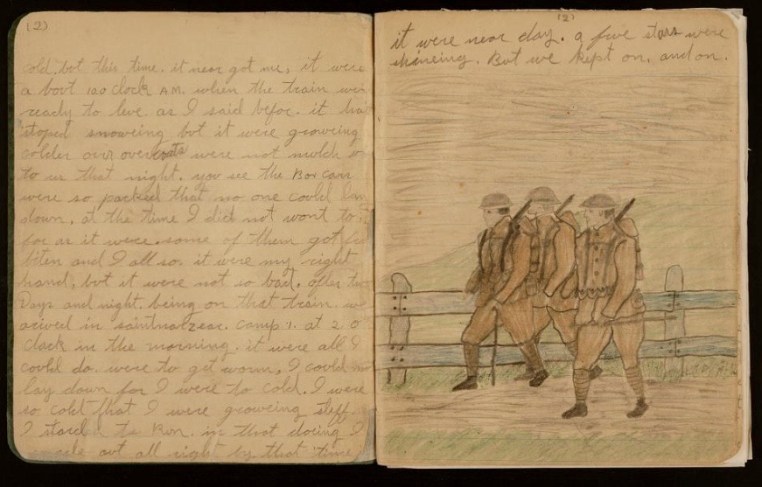 (2)
cold, but this time. it near got me, it were
a bout 120 clock A.M. when the train wer
ready to leve as I said befor. it had
stoped snoweing but it were groweing
colder our overcoats were not mutch
to us that night. you see the Box cars
were so packed that no one could lay
down, at the time I did not wont to.
for as it were some of them got
biten and I all so. it were my right
hand, but it were not so bad. after two
Days and night. being on that train. we
arived in saint camp 1. at 2 o
clock in the morning. it were all I
could do were to get worm, I could no
lay down for I were to cold. I were
so cold that I were groweing steff.
I started to Run. in that doring I
out all right by that time
(2)
it were near day. a few stars were
shineing. But we kept on. and on.